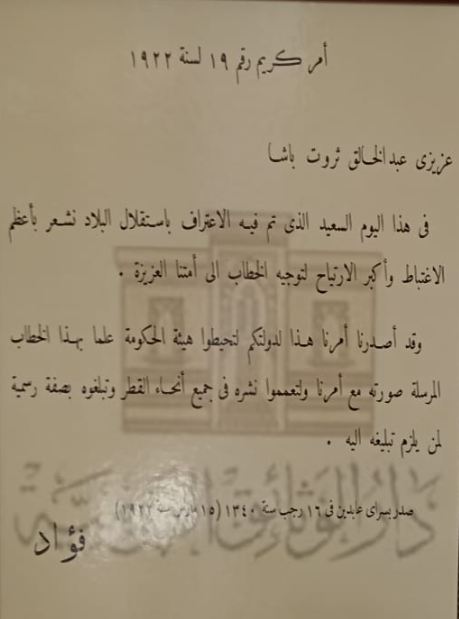 أمر كريم رقم ١٩ لسنة ١٩٢٢
عزيزى عبد الخالق ثروت باشا
فى هذا اليوم السعيد الذى تم فيه الاعتراف باستقلال البلاد نشعر بأعظم
الاغتباط وأكبر الارتياح لتوجيه الخطاب الى أمتنا العزيزة .
وقد أصدرنا أمرنا هذا لدولتكم لتحيطوا هيئة الحكومة علما بهذا الخطاب
المرسلة صورته مع أمرنا ولتعمموا نشره فى جميع أنحاء القطر وتبلغوه بصفة رسمية
لمن يلزم تبليغه اليه .
صدر بسراى عابدين فى ١٦ رجب سنة ١٣٤٠ (١٥ مارس سنة ١٩٢٢)
فؤاد
دار الوثائق القومية